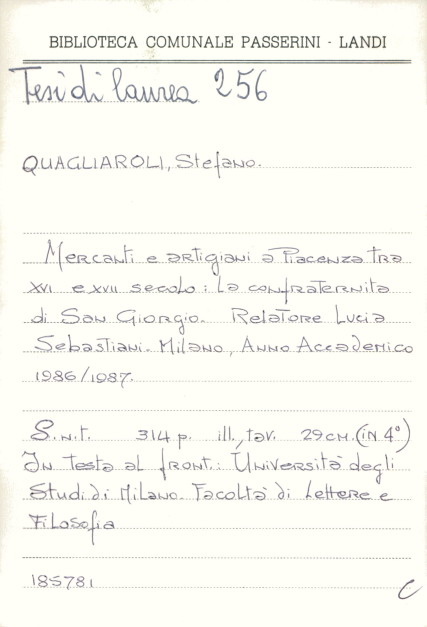 BIBLIOTECA COMUNALE PASSERINI - LANDI
Tesi di laurea 256
QUAGLIAROLI, Stefano.
Mercanti e artigiani a Piacenza tra
XVI e XVII secolo : la confraternita
di San Giorgio. Relatore Lucia
Sebastiani. Milano, Anno Accademico
1986/1987.
S.n.t. 314 p. ill., tav. 29 cm. (in 4°)
In testa al front.: Università degli
Studi di Milano. Facoltà di Lettere e
Filosofia
185781
C